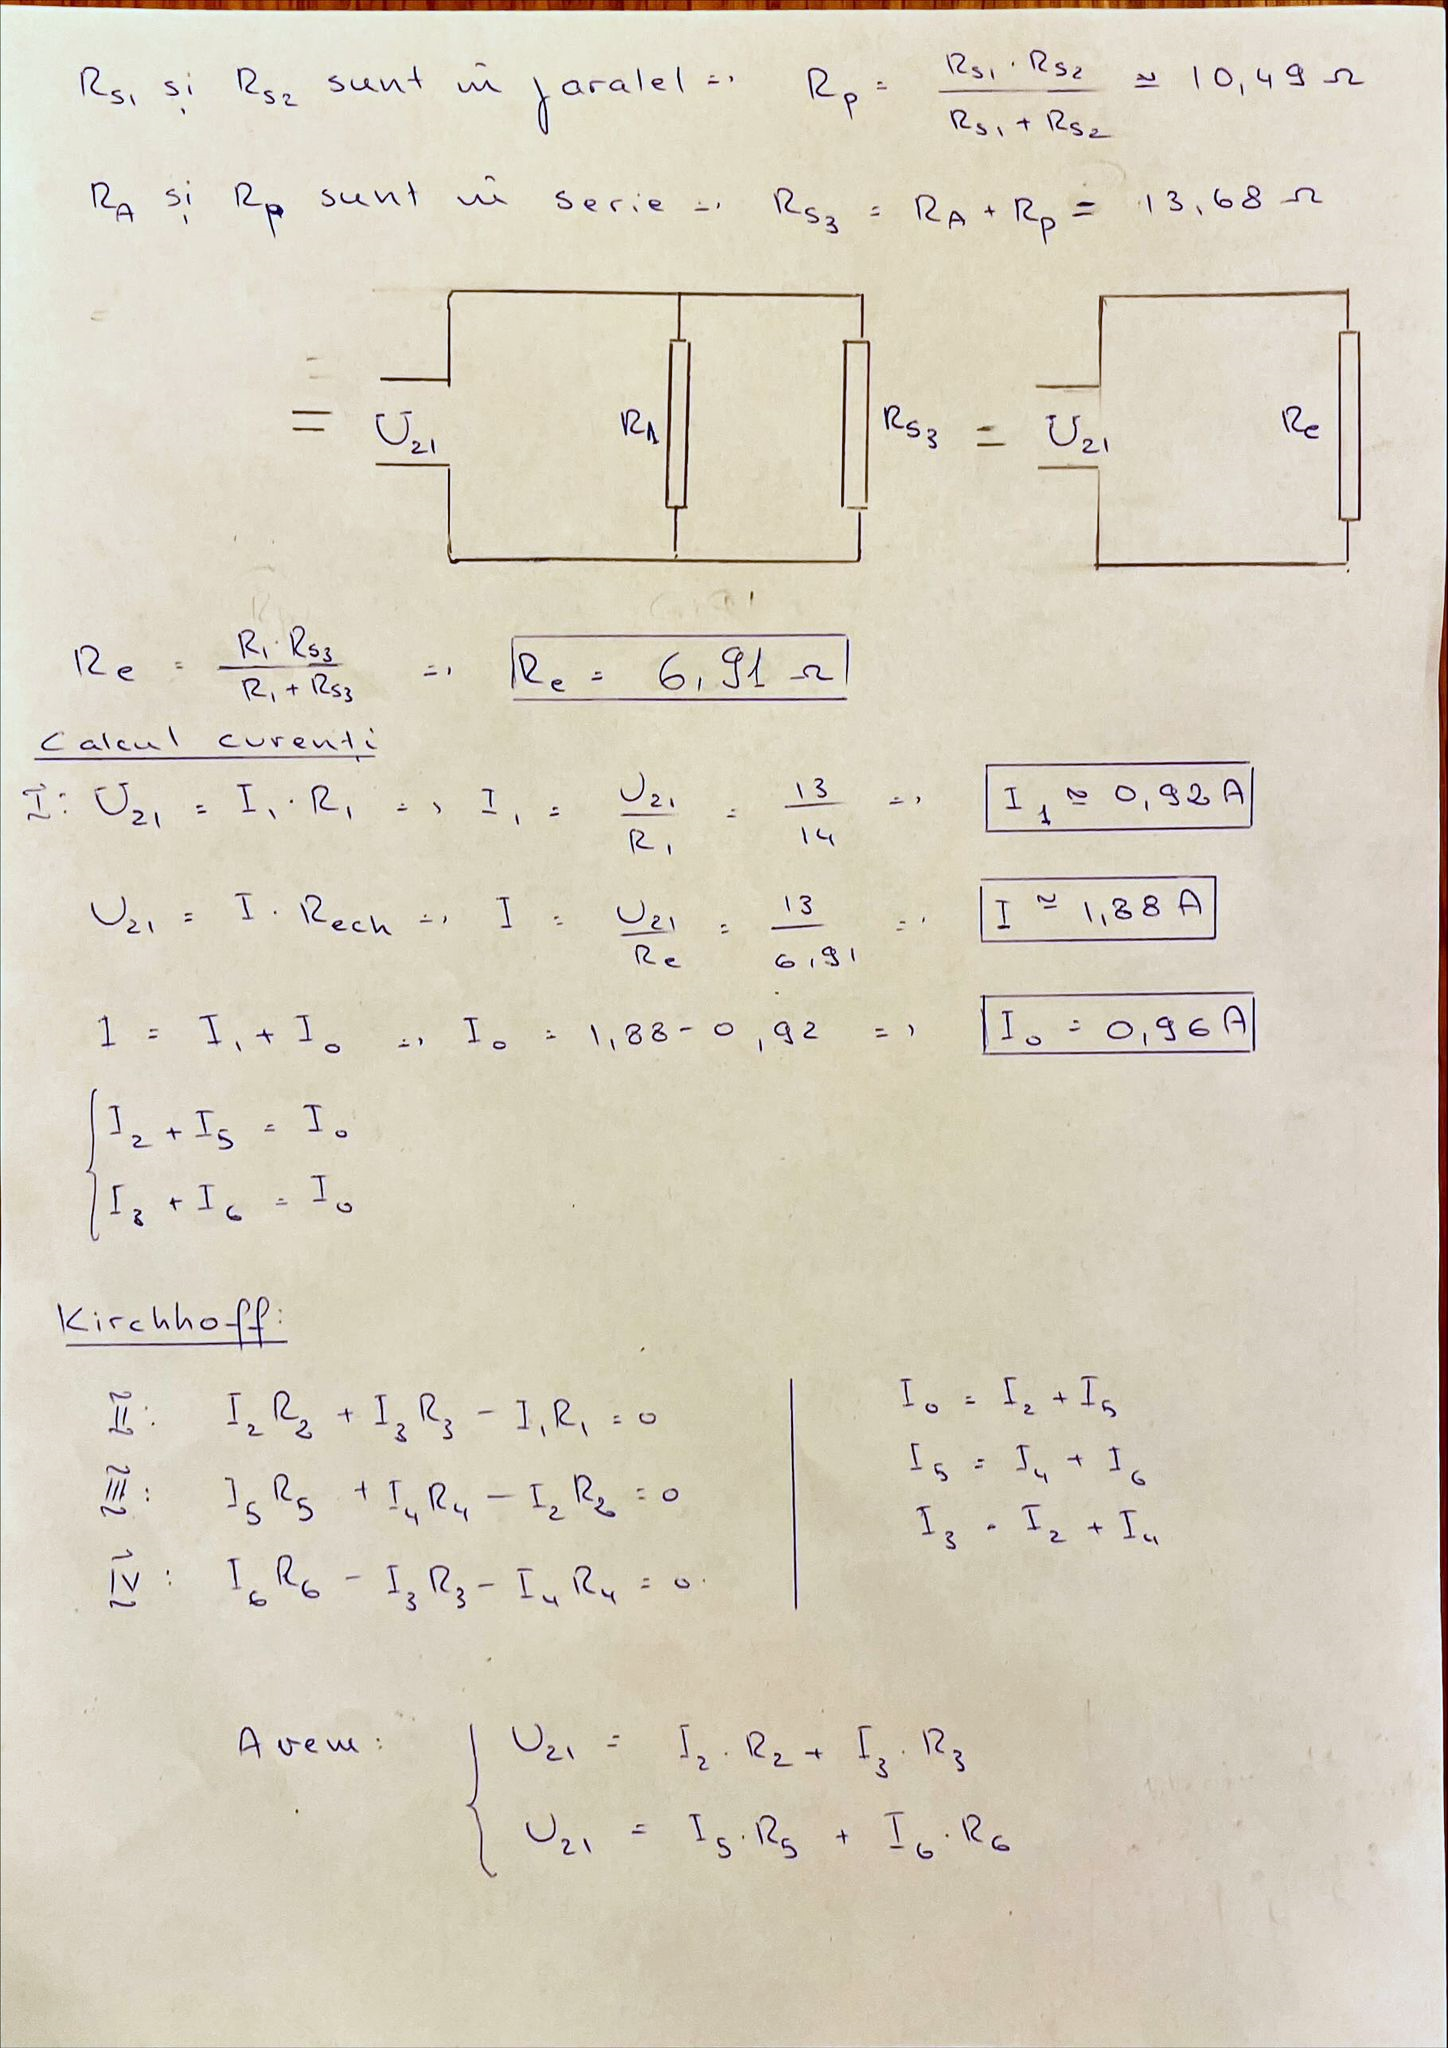 Rs1 și Rs2 sunt în paralel => Rp = (Rs1 · Rs2) / (Rs1 + Rs2) ≃ 10,49 Ω
RA și Rp sunt în serie => Rs3 = RA + Rp = 13,68 Ω
= U21 R1 Rs3 = U21 Re
Re = (R1 · Rs3) / (R1 + Rs3) => Re = 6,91 Ω
Calcul curenți
I: U21 = I1 · R1 => I1 = U21 / R1 = 13 / 14 => I1 ≃ 0,92 A
U21 = I · Rech => I = U21 / Re = 13 / 6,91 => I ≃ 1,88 A
I = I1 + I0 => I0 = 1,88 - 0,92 => I0 = 0,96 A
I2 + I5 = I0
I3 + I6 = I0
Kirchhoff:
II: I2 R2 + I3 R3 - I1 R1 = 0
III: I5 R5 + I4 R4 - I2 R2 = 0
IV: I6 R6 - I3 R3 - I4 R4 = 0
I0 = I2 + I5
I5 = I4 + I6
I3 = I2 + I4
Avem: U21 = I2 · R2 + I3 · R3
U21 = I5 · R5 + I6 · R6